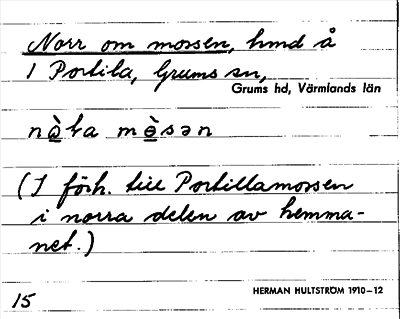 Norr om mossen, hmd å
1 Portila, Grums sn,
Grums hd, Värmlands län
nὰ̠ta mὲ̠sən
(I förh. till Portillamossen
i norra delen av hemma-
net.)
15
HERMAN HULTSTRÖM 1910-12